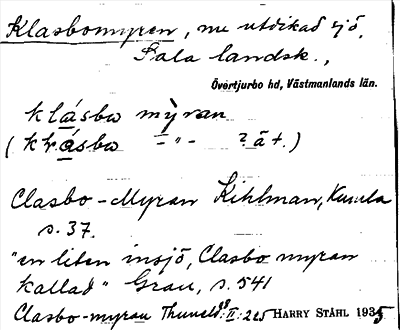 Klasbomyren, nu utdikad sjö,
Sala landsk.,
Övertjurbo hd, Västmanlands län.
klásbo mỳran
(krásbo -"- ? ä t.)
Clasbo-Myran Kihlman,
s. 37.
"en liten insjö, Clasbo myran
kallad" Grau, s. 541
Clasbo-myran II: 265 HARRY STÅHL 1935